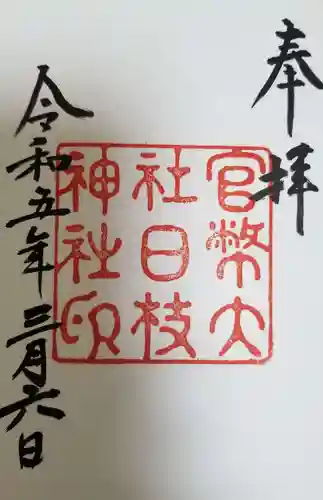 奉拝
官幣大
社日枝
神社印
令和五年三月六日